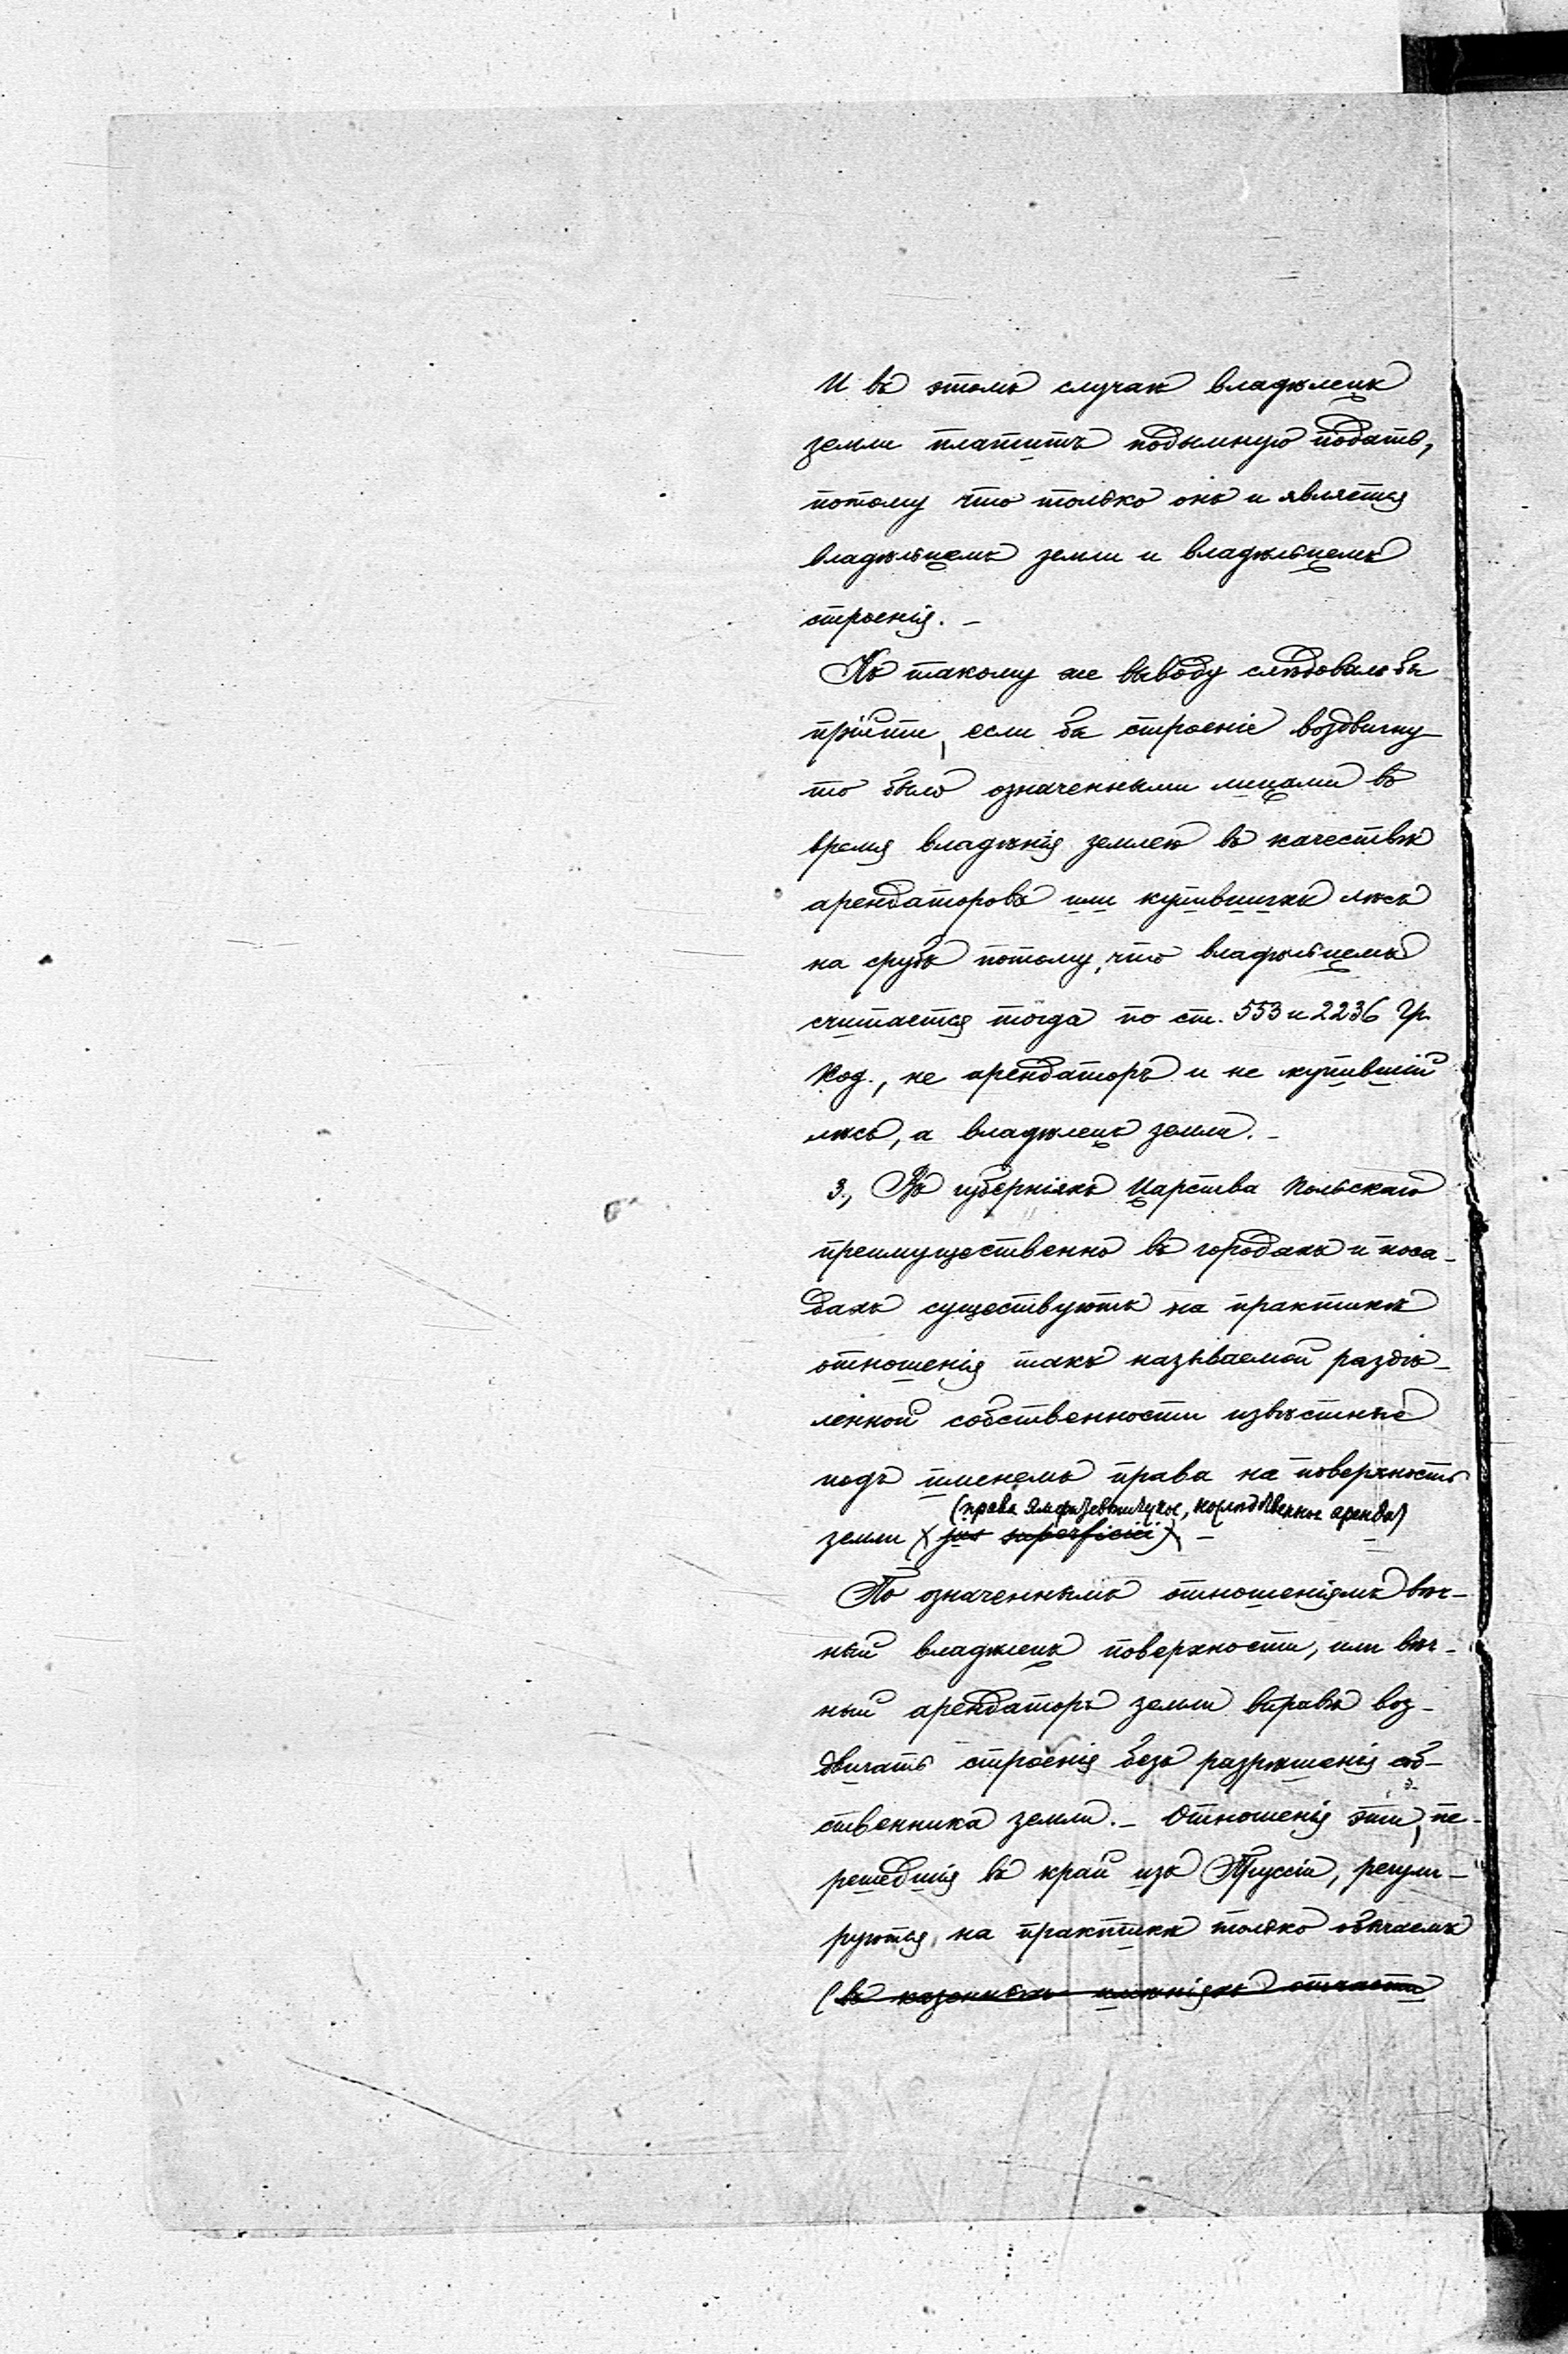 И въ этомъ случаѣ владѣлецъ
земли платитъ подымную подать,
потому что только онъ и является
владѣльцемъ земли и владѣльцемъ
строенія. –
Къ такому же выводу слѣдовало бы
прійти, если бы строеніе воздвигну-
то было означенными лицами во
время владѣнія землею въ качествѣ
арендаторовъ или купившихъ лѣсъ
на срубъ потому, что владѣльцемъ
считается тогда по ст. 553 и 2236 Гр.
Код., не арендаторъ и не купившій
лѣсъ, а владѣлецъ земли. –
3, Въ губерніяхъ Царства Польскаго
преимущественно въ городахъ и поса-
дахъ существуютъ на практикѣ
отношенія такъ называемой раздѣ-
ленной собственности извѣстные
подъ именемъ права на поверхность
(права эмфитевтическое, наслѣдственная аренда)
земли (jus superficiei). –
По означеннымъ отношеніямъ вѣч-
ный владѣлецъ поверхности, или вѣч-
ный арендаторъ земли вправѣ воз-
двигать строенія безъ разрѣшенія соб-
ственника земли. – Отношенія эти, пе-
решедшія въ край изъ Пруссіи, регули-
руются, на практикѣ только обычаемъ
(въ казенныхъ имѣніяхъ отчасти